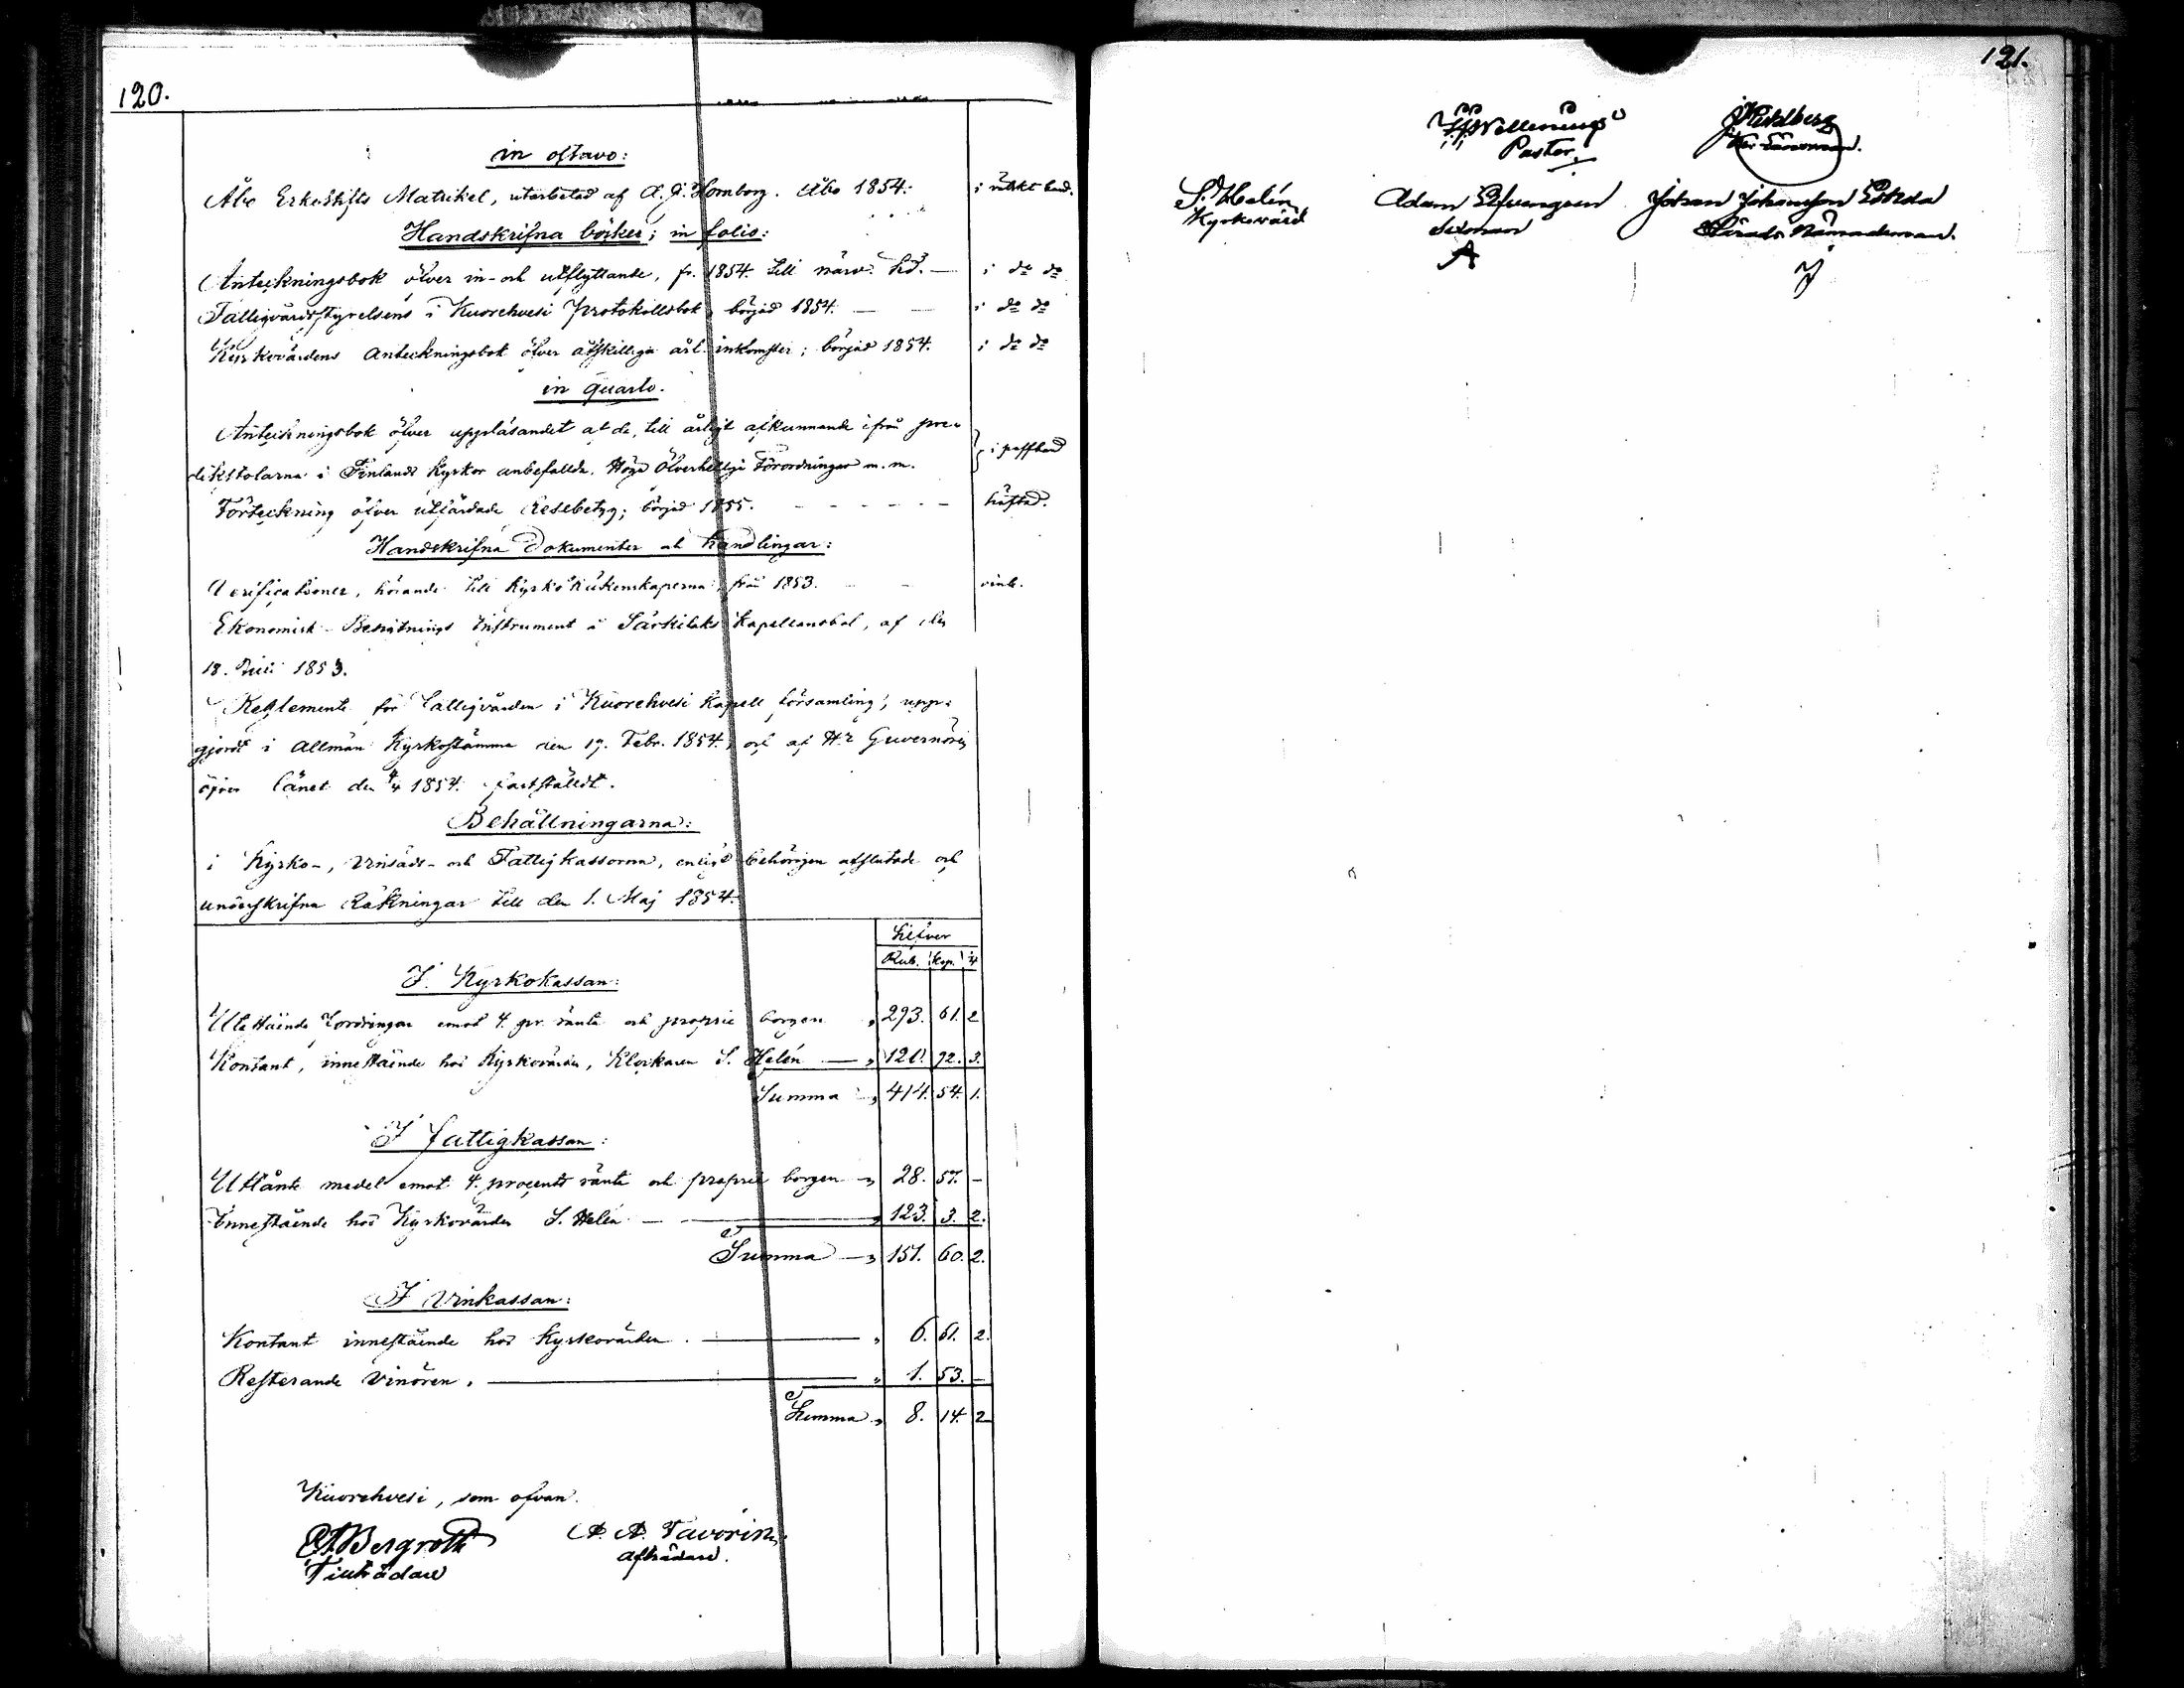 120.
in octavo:
Åbo Erkestifts Matrikel, utarbetad af A. G. Homborg. Åbo 1854. i mkt band.
Handskrifna böcker; in folio:
Anteckningsbok öfver in- och utflyttande, fr. 1854. till närv. tid. — i do do
Fattigvårdsstyrelsens i Kuorehvesi Protokollsbok, börjad 1854. — i do do
Kyrkovärdens Anteckningsbok öfver åtskilliga årl. inkomster; börjad 1854. i do do
in quarto.
Anteckningsbok öfver uppläsandet af de, till årligt afkunnande ifrån pre-
dikstolarna i Finlands Kyrkor anbefallda, Höga Öfverhetliga Förordningar m. m. i pappband
Förteckning öfver utfärdade Resebetyg; börjad 1855. - - - - - häftad.
Handskrifna Dokumenter och handlingar:
Verificationer, hörande till Kyrko Räkenskaperna, från 1853.
Ekonomisk Besigtnings Instrument å Särkilaks Kapellansbol, af den
18. Juli 1853.
Reglemente för Fattigvården i Kuorehvesi Kapell församling, upp-
gjordt i Allmän Kyrkostämma den 19. Febr. 1854. och af Hr Guvernören
öfver länet den 4/4 1854. fastställdt.
Behållningarna:
i Kyrko-, Vinsäds- och Fattigkassorna, enligt behörigen afslutade och
underskrifna Räkningar till den 1. Maj 1854.
Silfver
Rub. Kop. 1/4
I. Kyrkokassan:
Utestående fordringar emot 4. pr. ränta och proprie borgen „ 293. 61. 2
Kontant, innestående hos Kyrkovärden, Klockaren S. Helén — „ 120. 92. 3.
Summa „ 414. 54. 1.
I fattigkassan:
Utlånte medel emot 4. procents ränta och proprie borgen „ 28. 57. -
Innestående hos Kyrkovärden S. Helén — „ 123. 3. 2.
Summa — „ 151. 60. 2.
I Vinkassan:
Kontant innestående hos Kyrkovärden — „ 6. 61. 2.
Resterande vinören. — „ 1. 53. -
Summa „ 8. 14. 2
Kuorehvesi, som ofvan.
Bergroth A. A. Favorin
Tillträdare Afträdare.
121.
Pastor.
S. Helén Adam Johan Johansson
Kyrkovärd Sexman Härads Nämndeman.
A J